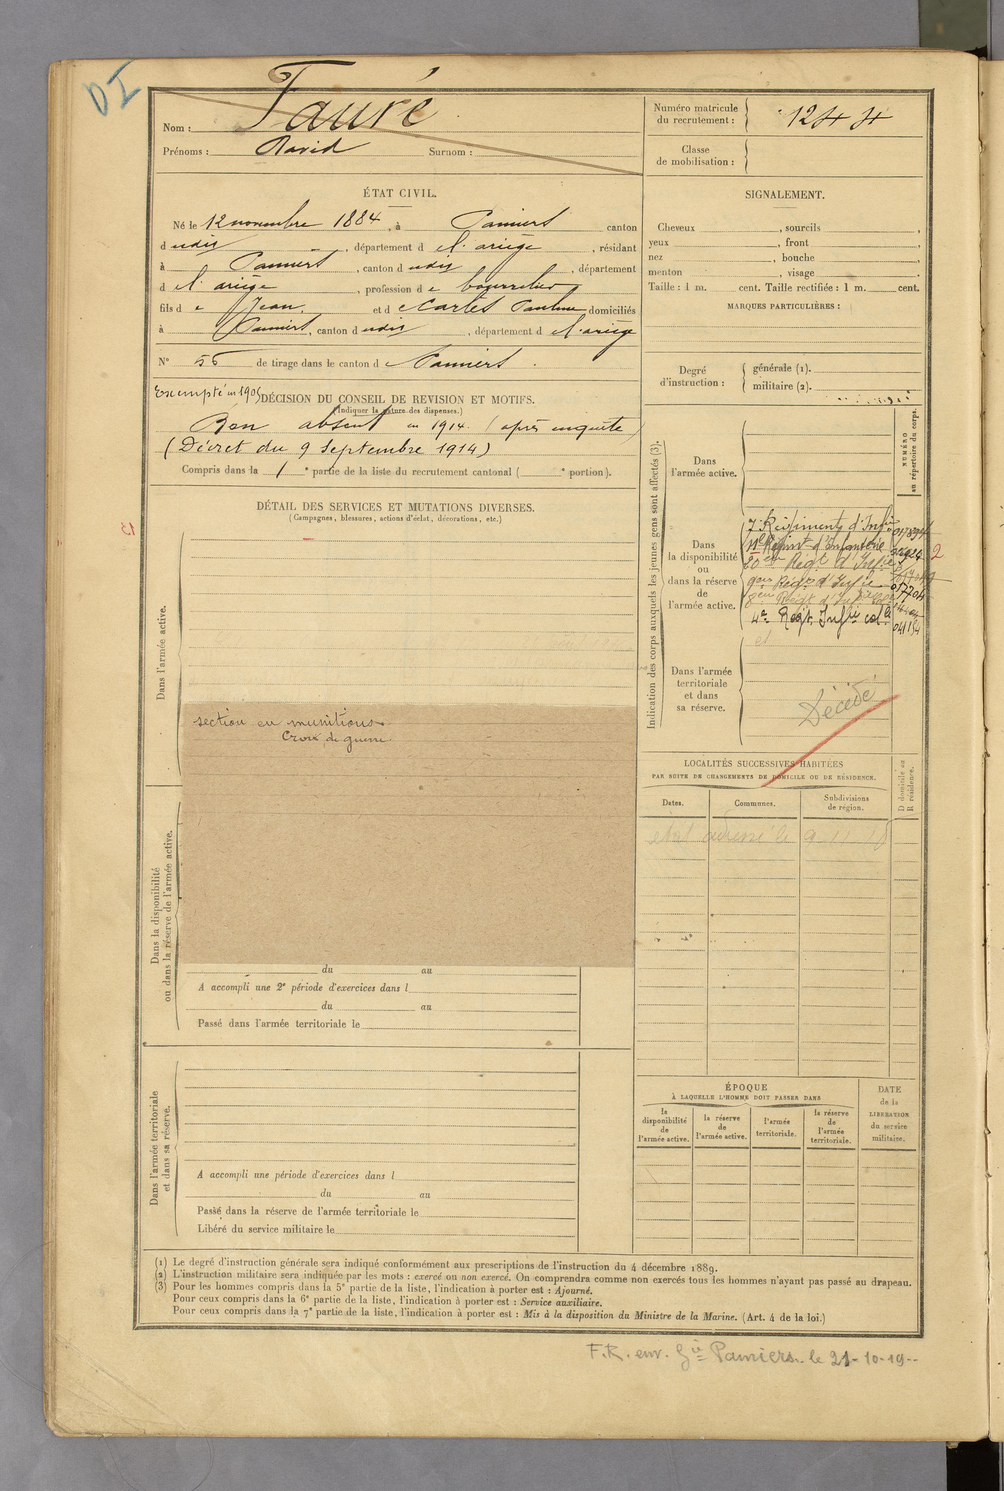 DI
Nom : Fauré
Prénoms : David Surnom :
Numéro matricule du recrutement : 1244
Classe de mobilisation :
ÉTAT CIVIL.
Né le 12 novembre 1884, à Pamiers canton
d udis, département d e l'ariège, résidant
à Pamiers, canton d udis, département
d e l'ariège, profession d e bourrelier
fils d e Jean et d e Cartès Pauline domiciliés
à Pamiers, canton d udis, département d e l'ariège
N° 56 de tirage dans le canton d e Pamiers.
SIGNALEMENT.
Cheveux , sourcils ,
yeux , front ,
nez , bouche ,
menton , visage ,
Taille : 1 m. cent. Taille rectifiée : 1 m. cent.
MARQUES PARTICULIÈRES :
Degré d'instruction : générale (1).
militaire (2).
Exempté en 1905 DÉCISION DU CONSEIL DE REVISION ET MOTIFS.
(Indiquer la nature des dispenses.)
Bon absent en 1914 (après enquête)
(Décret du 9 Septembre 1914)
Compris dans la 1re partie de la liste du recrutement cantonal ( e portion).
DÉTAIL DES SERVICES ET MUTATIONS DIVERSES.
(Campagnes, blessures, actions d'éclat, décorations, etc.)
Dans l'armée active.
section en munitions
Croix de guerre.
Dans la disponibilité
ou dans la réserve de l'armée active.
du au
A accompli une 2e période d'exercices dans l
du au
Passé dans l'armée territoriale le
Dans l'armée territoriale
et dans sa réserve.
A accompli une période d'exercices dans l
du au
Passé dans la réserve de l'armée territoriale le
Libéré du service militaire le
Indication des corps auxquels les jeunes gens sont affectés (3).
NUMÉRO
au répertoire du corps.
Dans
l'armée active.
Dans
la disponibilité
ou
dans la réserve
de
l'armée active.
Régiment d'Infie
Régimt d'Infanterie
20 Régt d'Infie
9 Régt d'Infie 017704
4e Régt Infie cole 04154
2
Dans l'armée
territoriale
et dans
sa réserve.
Décédé
LOCALITÉS SUCCESSIVES HABITÉES
PAR SUITE DE CHANGEMENTS DE DOMICILE OU DE RÉSIDENCE.
D domicile ou
R résidence.
Dates. Communes. Subdivisions de région.
état adressé le 9 11
ÉPOQUE
À LAQUELLE L'HOMME DOIT PASSER DANS
la disponibilité de l'armée active.
la réserve de l'armée active.
l'armée territoriale.
la réserve de l'armée territoriale.
DATE
de la
LIBÉRATION
du service
militaire.
(1) Le degré d'instruction générale sera indiqué conformément aux prescriptions de l'instruction du 4 décembre 1889.
(2) L'instruction militaire sera indiquée par les mots : exercé ou non exercé. On comprendra comme non exercés tous les hommes n'ayant pas passé au drapeau.
(3) Pour les hommes compris dans la 5e partie de la liste, l'indication à porter est : Ajourné.
Pour ceux compris dans la 6e partie de la liste, l'indication à porter est : Service auxiliaire.
Pour ceux compris dans la 7e partie de la liste, l'indication à porter est : Mis à la disposition du Ministre de la Marine. (Art. 4 de la loi.)
F.R. env. Gie Pamiers le 21-10-19